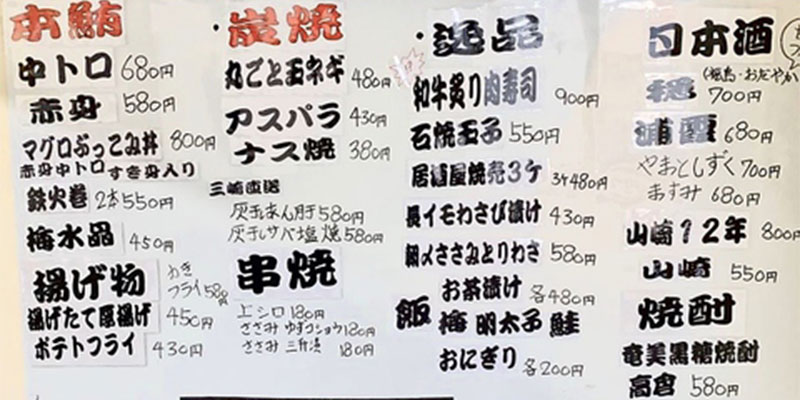 本鮪
中トロ 680円
赤身 580円
マグロぶっこみ丼 800円
赤身中トロすき身入り
鉄火巻 2本550円
梅水晶 450円
揚げ物
フライ 580円
揚げたて厚揚げ 450円
ポテトフライ 430円
・炭焼
丸ごと玉ネギ 480円
アスパラ 430円
ナス焼 380円
三崎直送
灰干あん肝 580円
灰干しサバ塩焼 580円
串焼
上シロ 180円
ささみ ゆずコショウ 180円
ささみ 180円
・逸品
和牛炙り肉寿司 900円
石焼玉子 550円
居酒屋焼売3ケ 3ケ480円
長イモわさび漬け 430円
朝〆ささみとりわさ 580円
お茶漬け 各480円
飯 梅 明太子 鮭
おにぎり 各200円
日本酒
(福島・おだやか)
穏 700円
浦霞 680円
やまとしずく 700円
あすみ 680円
山崎12年 800円
山崎 550円
焼酎
奄美黒糖焼酎
高倉 580円